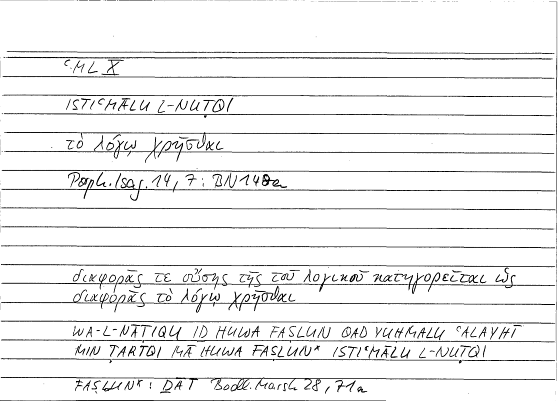 ʿML X
ISTIʿMĀLU L-NUṬQI
τὸ λόγῳ χρῆσθαι
Porph. Isag. 14, 7 : BN 148a
διαφορᾶς τε οὔσης τῆς τοῦ λογικοῦ κατηγορεῖται ὡς
διαφορᾶς τὸ λόγῳ χρῆσθαι
WA-L-NĀṬIQU IḎ HUWA FAṢLUN QAD YUḤMALU ʿALAYHI
MIN ṬARĪQI MĀ HUWA FAṢLUN* ISTIʿMĀLU L-NUṬQI
FAṢLUN* : ḎĀT Bodl. Marsh 28, 71a